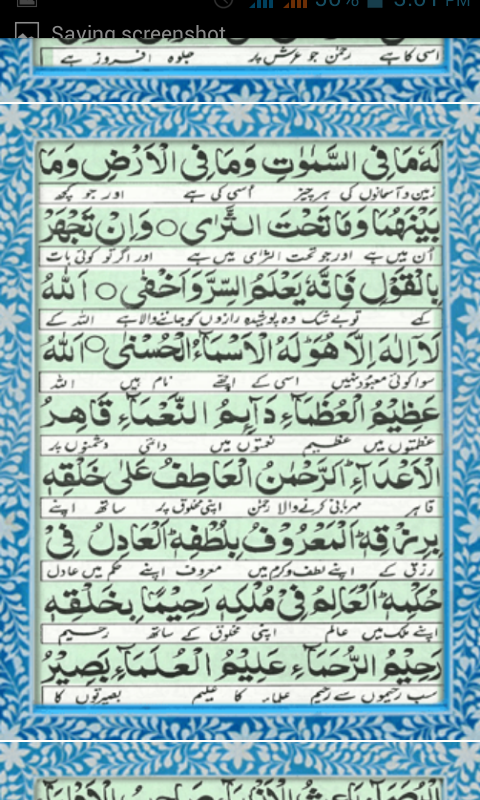 Saving screenshot...
اسی کا ہے رحمٰن جو عرش پر جلوہ افروز ہے
لَهٗ مَا فِی السَّمٰوٰتِ وَمَا فِی الْاَرْضِ وَمَا
زمین و آسمانوں کی ہر چیز اُسی کی ہے اور جو کچھ
بَيْنَهُمَا وَمَا تَحْتَ الثَّرٰى ○ وَاِنْ تَجْهَرْ
ان میں ہے اور جو تحت الثرٰی میں ہے اور اگر تو کوئی بات
بِالْقَوْلِ فَاِنَّهٗ يَعْلَمُ السِّرَّ وَاَخْفٰى ○ اَللّٰهُ
کہے تو بے شک وہ پوشیدہ رازوں کو جاننے والا ہے اللہ کے
لَآ اِلٰهَ اِلَّا هُوَ لَهُ الْاَسْمَآءُ الْحُسْنٰى ○ اَللّٰهُ
سوا کوئی معبود نہیں اسی کے اچھے نام ہیں اللہ
عَظِيْمُ الْعُظَمَآءِ دَآئِمُ النَّعْمَآءِ قَاهِرُ
عظمتوں میں عظیم نعمتوں میں دائمی دشمنوں پر
الْاَعْدَآءِ الرَّحْمٰنُ الْعَاطِفُ عَلٰى خَلْقِهٖ
قاہر مہربانی کرنے والا رحمٰن اپنی مخلوق پر ساتھ اپنے
بِرِزْقِهٖ الْمَعْرُوْفُ بِلُطْفِهٖ الْعَادِلُ فِيْ
رزق کے اپنے لطف و کرم میں معروف اپنے حکم میں عادل
حُكْمِهٖ الْعَالِمُ فِيْ مُلْكِهٖ رَحِيْمًا بِخَلْقِهٖ
اپنے ملک میں عالم اپنی مخلوق کے ساتھ رحیم
رَحِيْمُ الرُّحَمَآءِ عَلِيْمُ الْعُلَمَآءِ بَصِيْرُ
سب رحیموں سے رحیم علماء کا علیم بصیرتوں کا